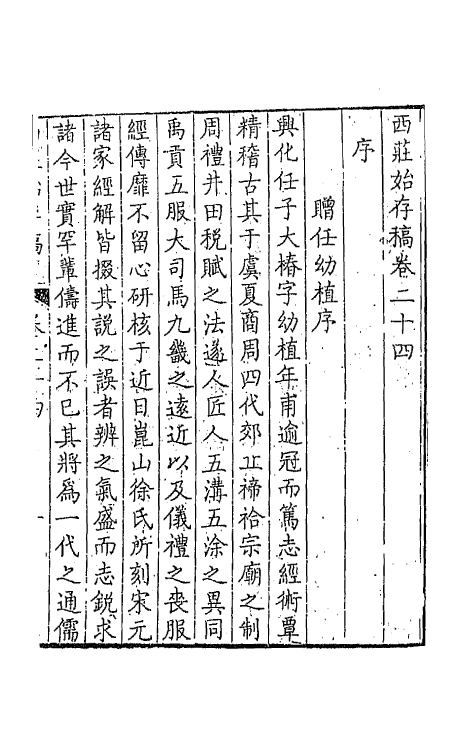 西莊始存稿卷二十四
序
贈任幼植序
興化任子大椿字幼植年甫逾冠而篤志經術覃
精稽古其于虞夏商周四代郊丘禘祫宗廟之制
周禮井田稅賦之法遂人匠人五溝五涂之異同
禹貢五服大司馬九畿之逺近以及儀禮之喪服
經傳靡不留心研核于近日崑山徐氏所刻宋元
諸家經解皆掇其説之誤者辨之氣盛而志銳求
諸今世實罕輩儔進而不已其將爲一代之通儒